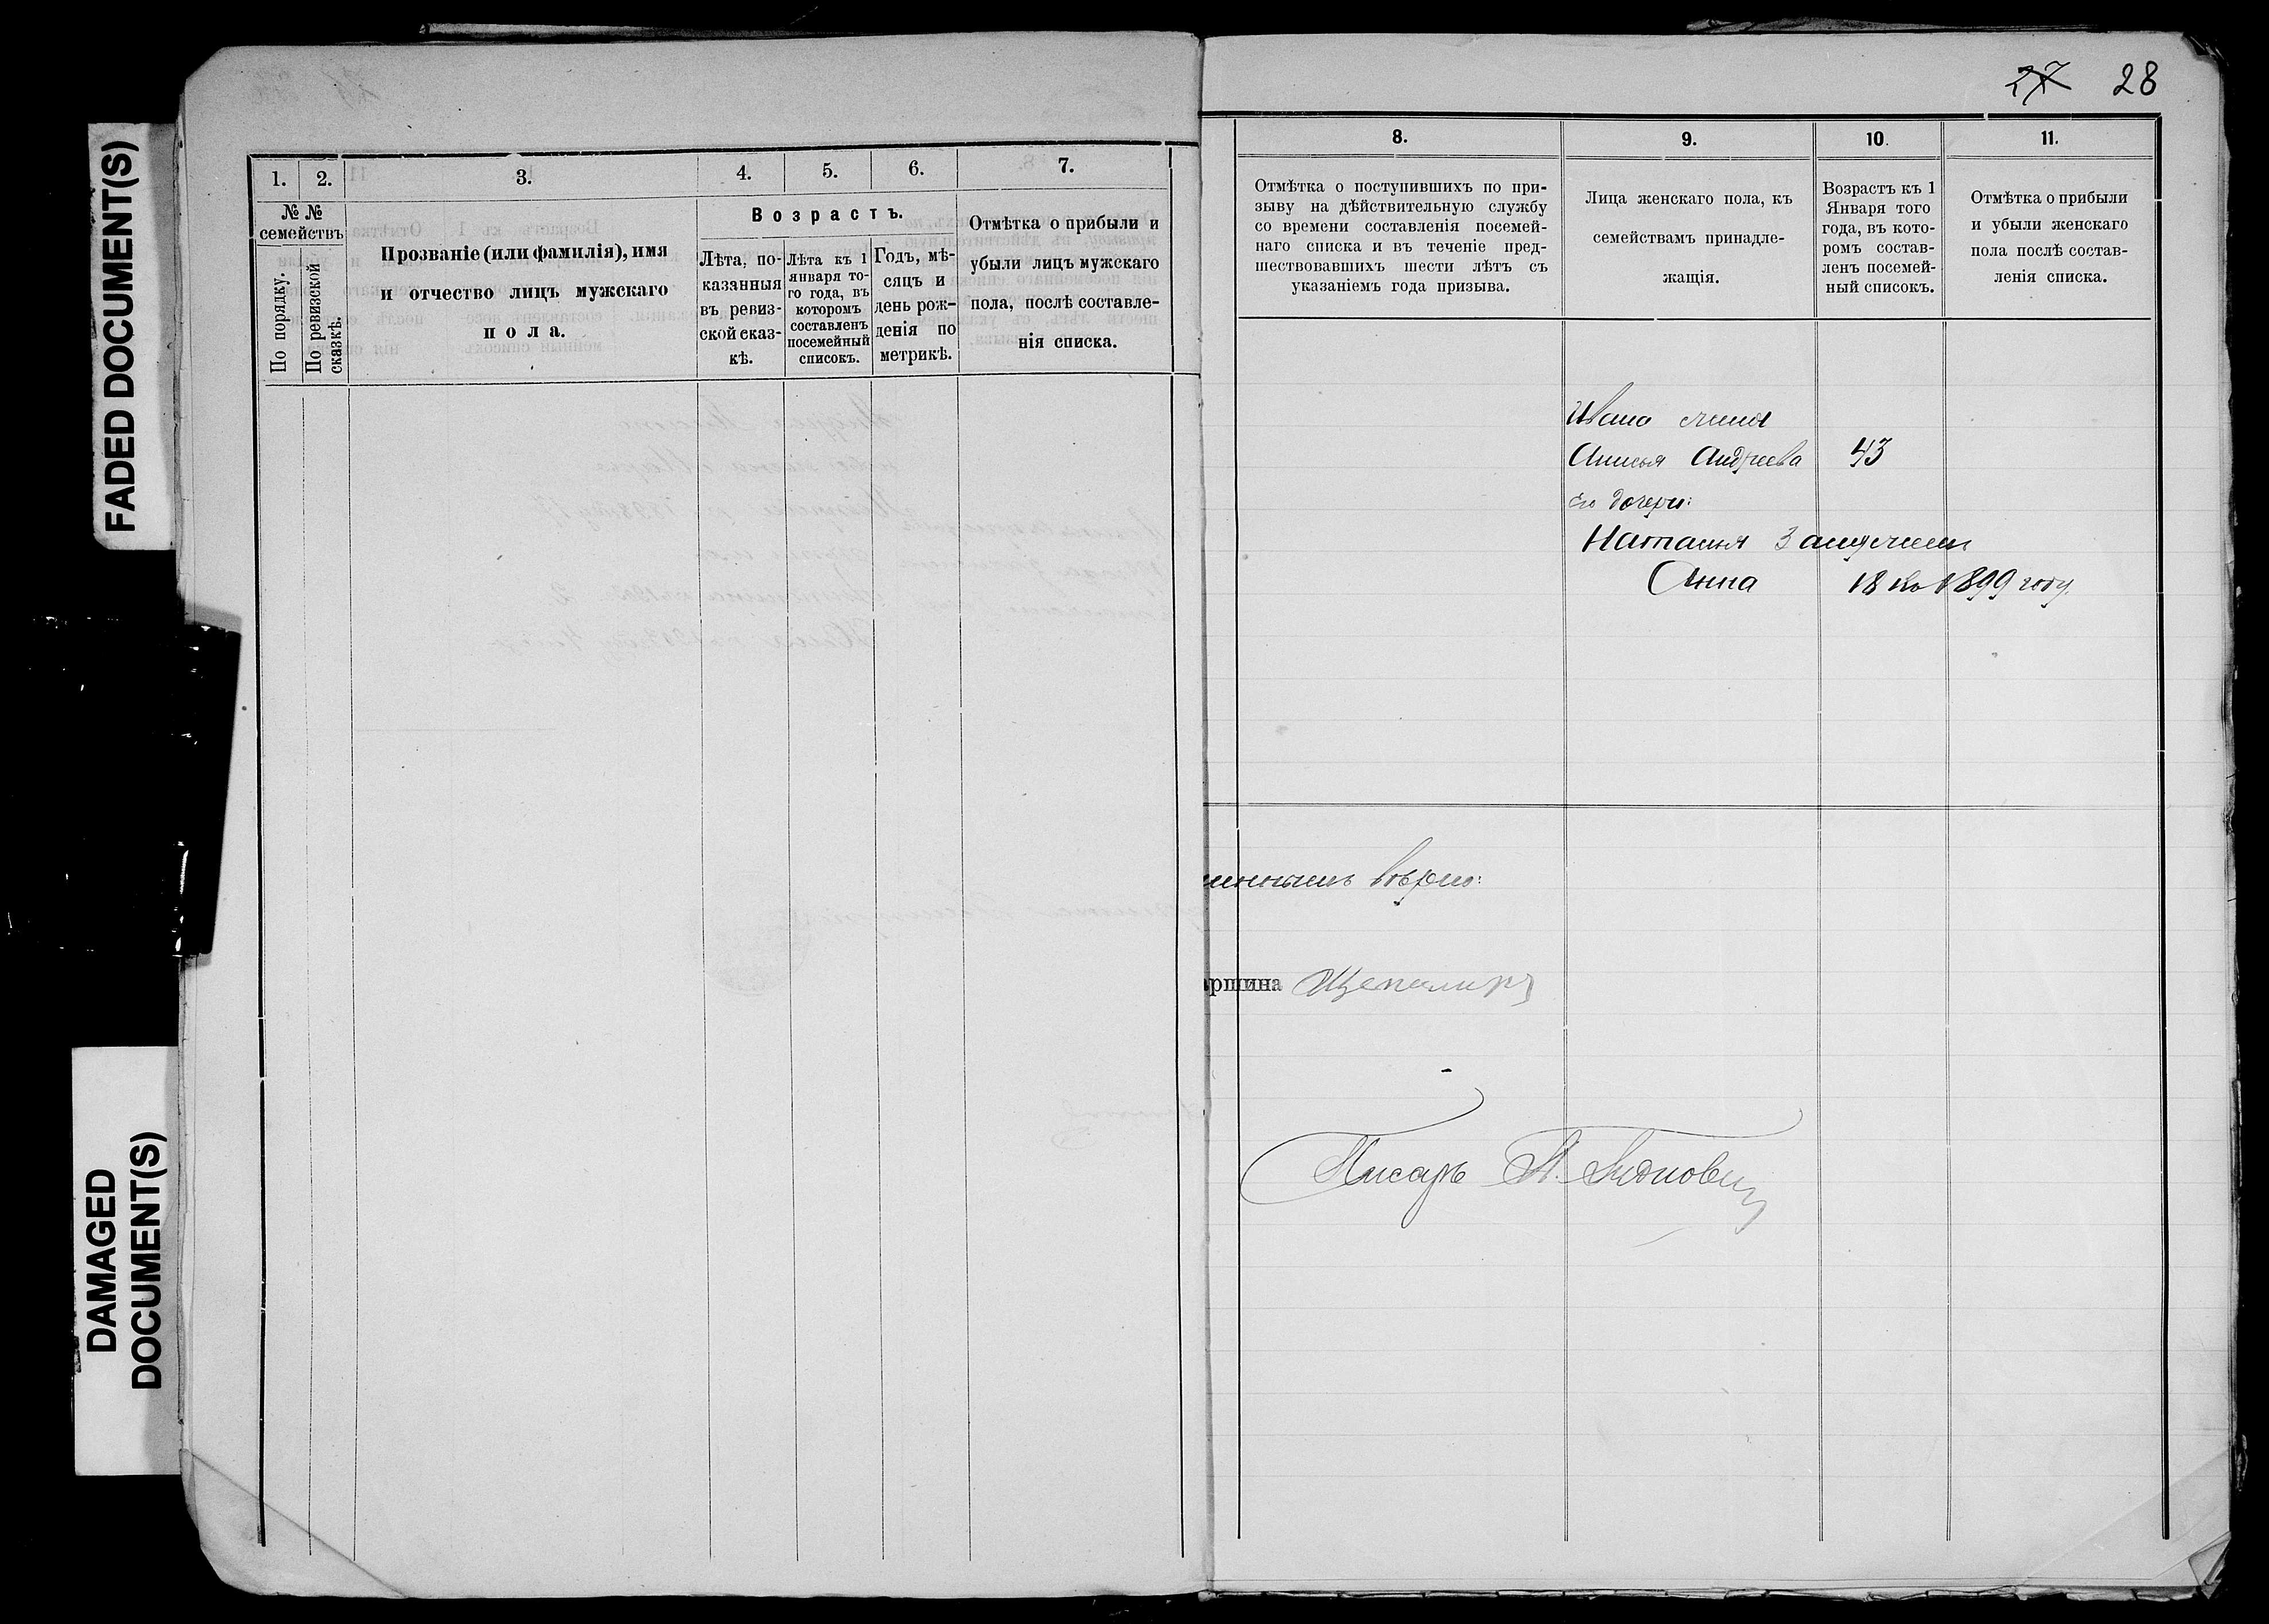 FADED DOCUMENT(S)
DAMAGED
DOCUMENT(S)
1.
2.
3.
4.
5.
6.
7.
№ №
семействъ
По порядку.
По ревизской
сказкѣ.
Прозваніе (или фамилія), имя
и отчество лицъ мужскаго
пола.
Возрастъ.
Лѣта, по-
казанныя
въ ревиз-
ской сказ-
кѣ.
Лѣта къ 1
января то-
го года, въ
которомъ
составленъ
посемейный
списокъ.
Годъ, мѣ-
сяцъ и
день рож-
денія по
метрикѣ.
Отмѣтка о прибыли и
убыли лицъ мужскаго
пола, послѣ составле-
нія списка.
27 28
8.
9.
10.
11.
Отмѣтка о поступившихъ по при-
зыву на дѣйствительную службу
со времени составленія посемей-
наго списка и въ теченіе пред-
шествовавшихъ шести лѣтъ съ
указаніемъ года призыва.
Лица женскаго пола, къ
семействамъ принадле-
жащія.
Возрастъ къ 1
Января того
года, въ кото-
ромъ состав-
ленъ посемей-
ный списокъ.
Отмѣтка о прибыли
и убыли женскаго
пола послѣ состав-
ленія списка.
Ивана жена
Анисья Андреева 43
Его дочери:
Наталья Замужем
Анна 18 къ 1899 году.
вѣрно:
аршина
Писарь А.